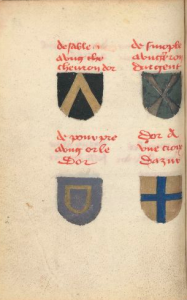 de sable a
ung che
cheuron dor
de sinople
a ung
dargent
de pourpre
a ung orle
Dor
Dor A
vne croix
Dazur